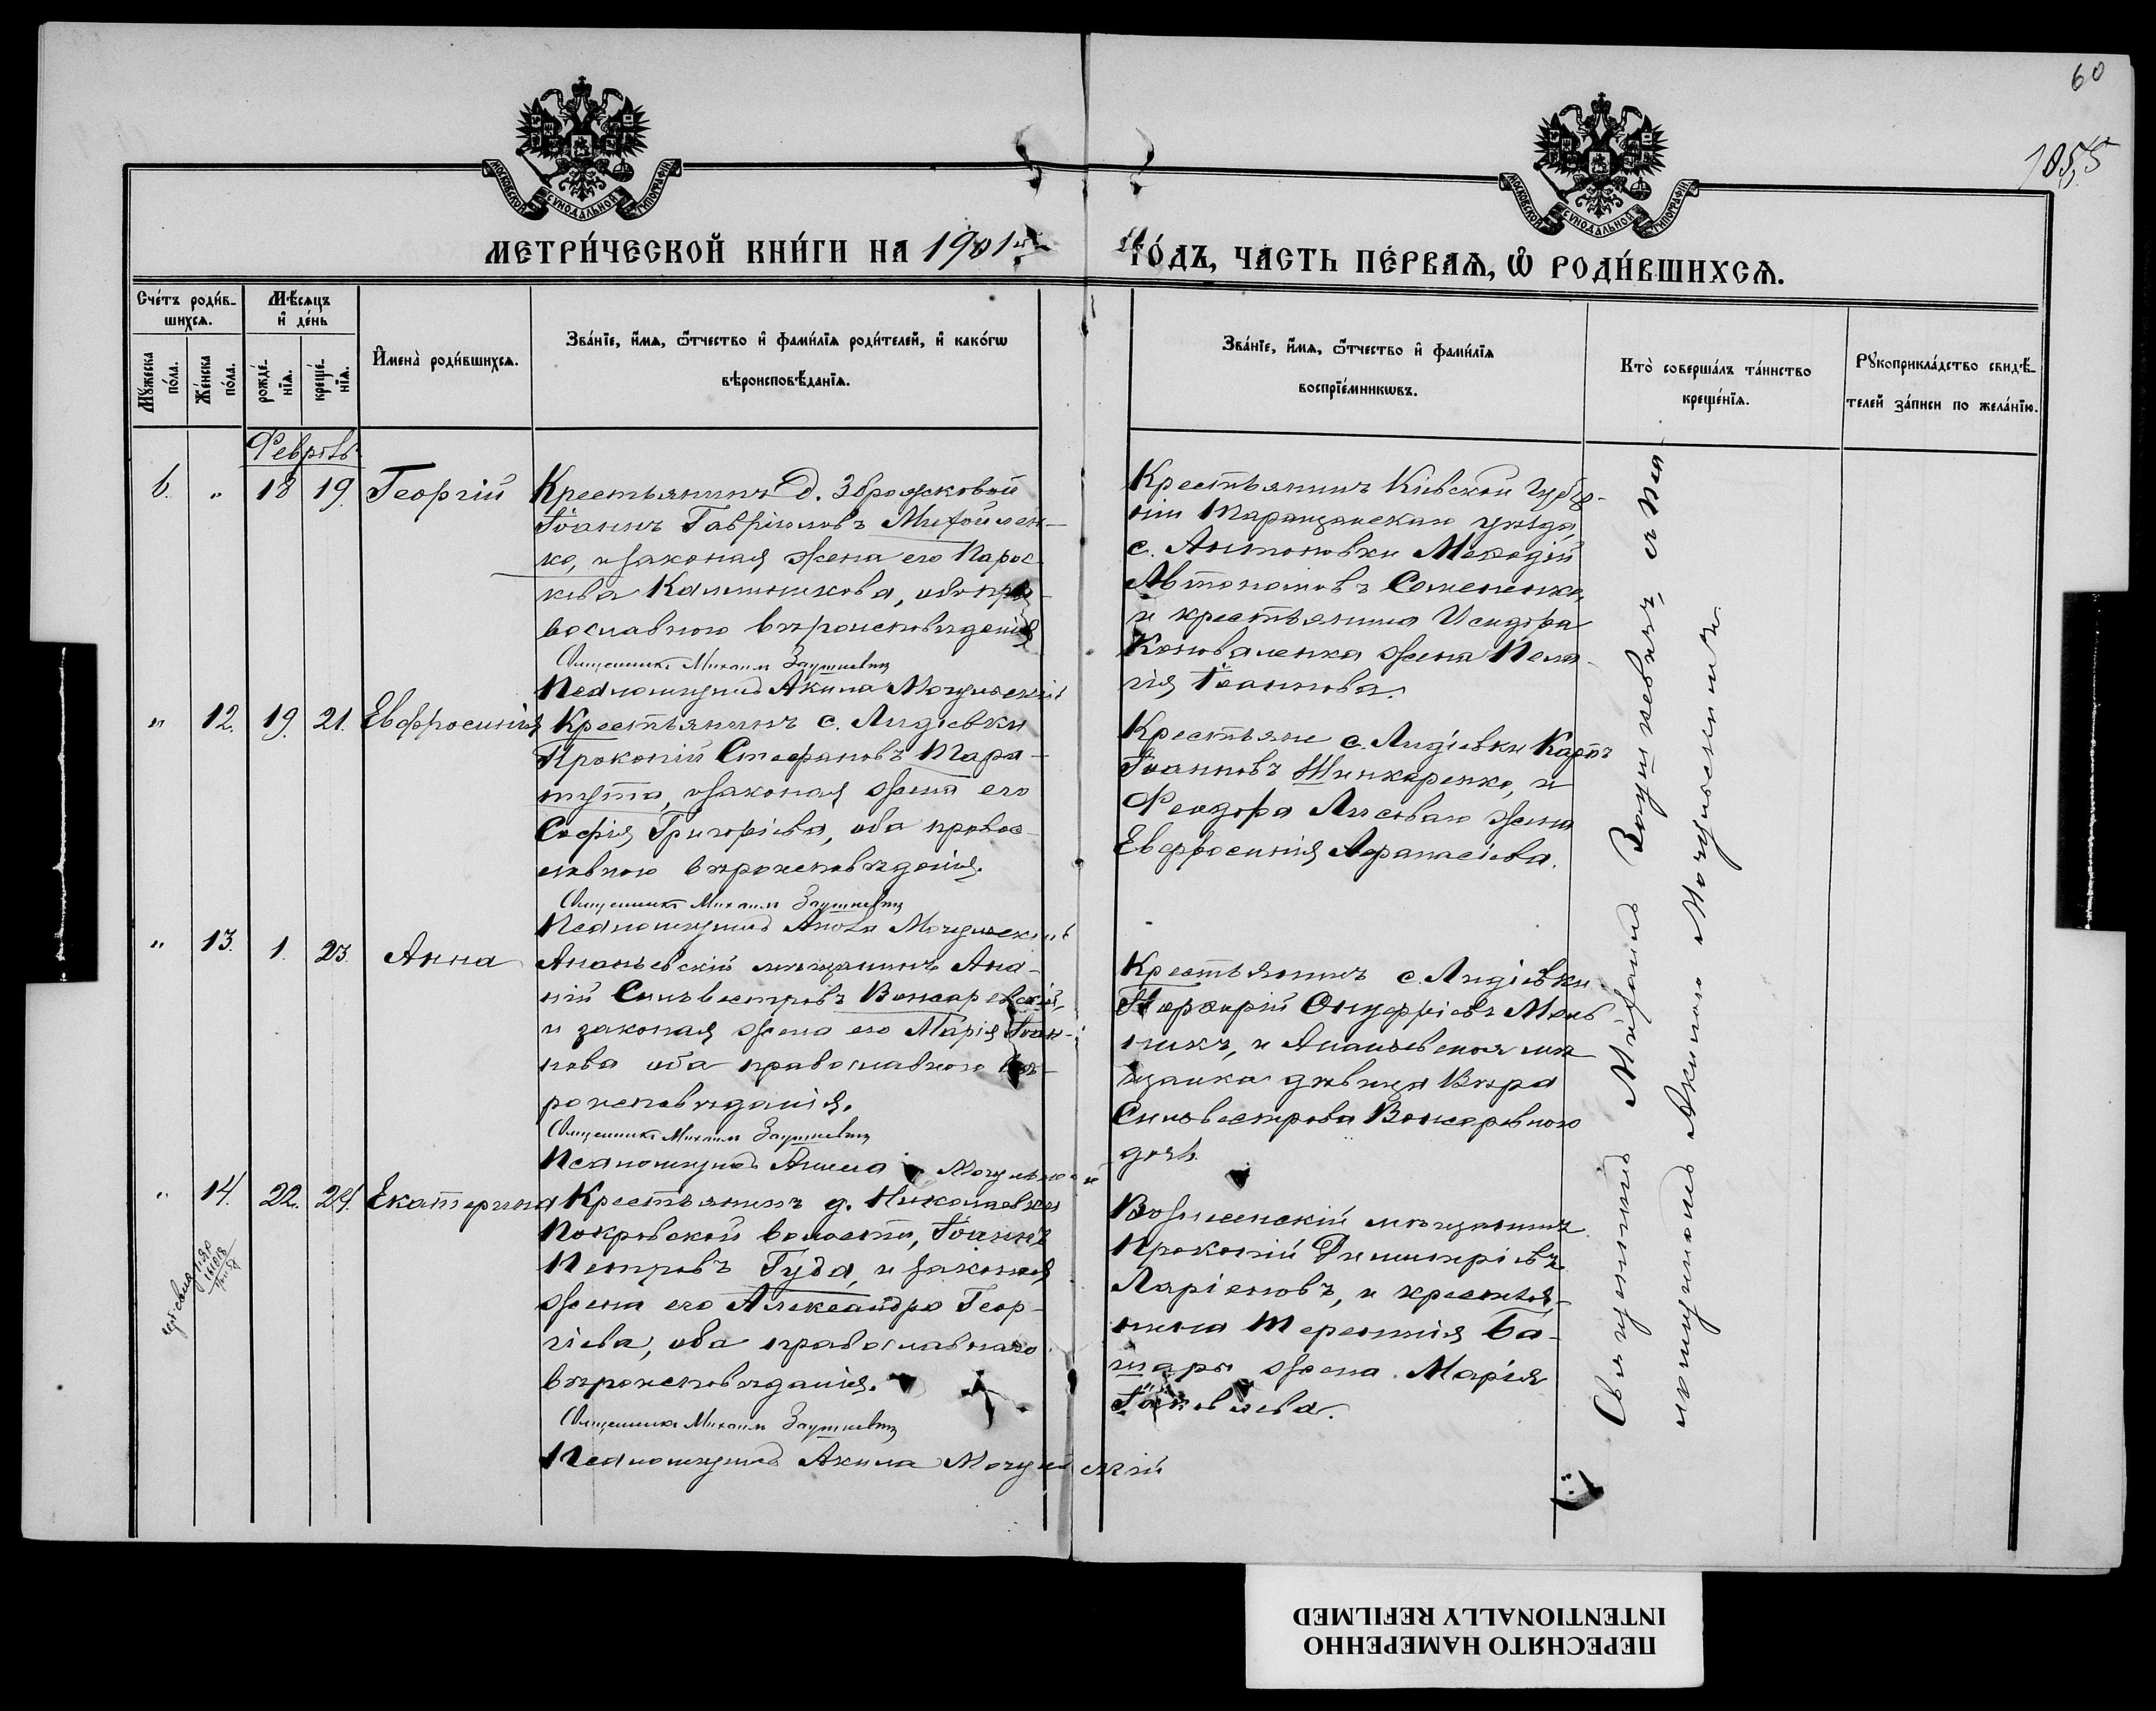 60
1055
МОСКОВСКОЙ СѴНОДАЛЬНОЙ ТИПОГРАФІИ
МОСКОВСКОЙ СѴНОДАЛЬНОЙ ТИПОГРАФІИ
МЕТРИ́ЧЕСКОЙ КНИ́ГИ НА 1901й
ГО́ДЪ, ЧА́СТЬ ПЕ́РВАѦ, Ѡ҆ РОДИ́ВШИХСѦ.
Сче́тъ роди́в-
шихсѧ.
Мѣ́сѧцъ
и҆ де́нь
Мꙋ́жеска по́ла.
Же́нска по́ла.
рожде́-нїѧ.
креще́-нїѧ.
И҆мена̀ роди́вшихсѧ.
Зва́нїе, и҆́мѧ, ѻ҆́тчество и҆ фами́лїѧ роди́телей, и҆ како́гѡ
вѣроисповѣ́данїѧ.
Зва́нїе, и҆́мѧ, ѻ҆́тчество и҆ фами́лїѧ
воспрїе́мникѡвъ.
Кто̀ соверша́лъ та́инство
креще́нїѧ.
Рꙋкоприкла́дство свидѣ́-
телей за́писи по жела́нїю.
Февраль
6. " 18 19. Георгій
Крестьянинъ д. Зброжковой
Іоаннъ Гавріиловъ Митойлен-
ко, и законая жена его Парас-
кева Каллиникова, оба пра-
вославного вѣроисповѣданія
Священникъ Михаилъ Заушкевич
Псаломщикъ Акила Могульскій
Крестьянинъ Кіевской губер-
ніи Таращанскаго уѣзда,
с. Антоновки Меѳодій
Автономовъ Семененко,
и крестьянина Исидора
Коноваленка жена Пела-
гія Іоаннова.
" 12. 19. 21. Евфросинія
Крестьянинъ с. Лидіевки
Прокопій Стефановъ Тара-
тута, законая жена его
Софія Григоріева, оба правос-
лавного вѣроисповѣданія.
Священникъ Михаилъ Заушкевич
Псаломщикъ Акила Могульскій
Крестьяне с. Лидіевки Карпъ
Іоанновъ Шинкаренко, и
Феодора Лисоваго жена
Евфросинія Афанасіева.
" 13. 1. 23. Анна
Ананьевскій мѣщанинъ Ана-
ній Сильвестровъ Вонсаревскій,
и законая жена его Марія Іоан-
нова оба православного вѣ-
роисповѣданія.
Священникъ Михаилъ Заушкевич
Псаломщикъ Акила Могульскій
Крестьянинъ с. Лидіевки
Порфирій Онуфріевъ Мель
никъ, и Ананьевская мѣ
щанка дѣвица Вѣра
Сильвестрова Вонсаревского
дочь.
" 14. 22. 24. Екатерина
Крестьянинъ д. Николаевки
Покровской волости, Іоаннъ
Петровъ Гуда, и законая
жена его Александра Геор-
гіева, оба православнаго
вѣроисповѣданія.
Священникъ Михаилъ Заушкевич
Псаломщикъ Акила Могульскій
Вознесенскій мѣщанинъ
Прокопій Димитріевъ
Ларіоновъ, и крестья-
нина Терентія Ба-
шары жена Марія
Іаковлева.
Священникъ Михаилъ Заушкевичъ, съ пса-
ломщикомъ Акилою Могульскимъ.
ПЕРЕСНЯТО НАМЕРЕННО
INTENTIONALLY REFILMED